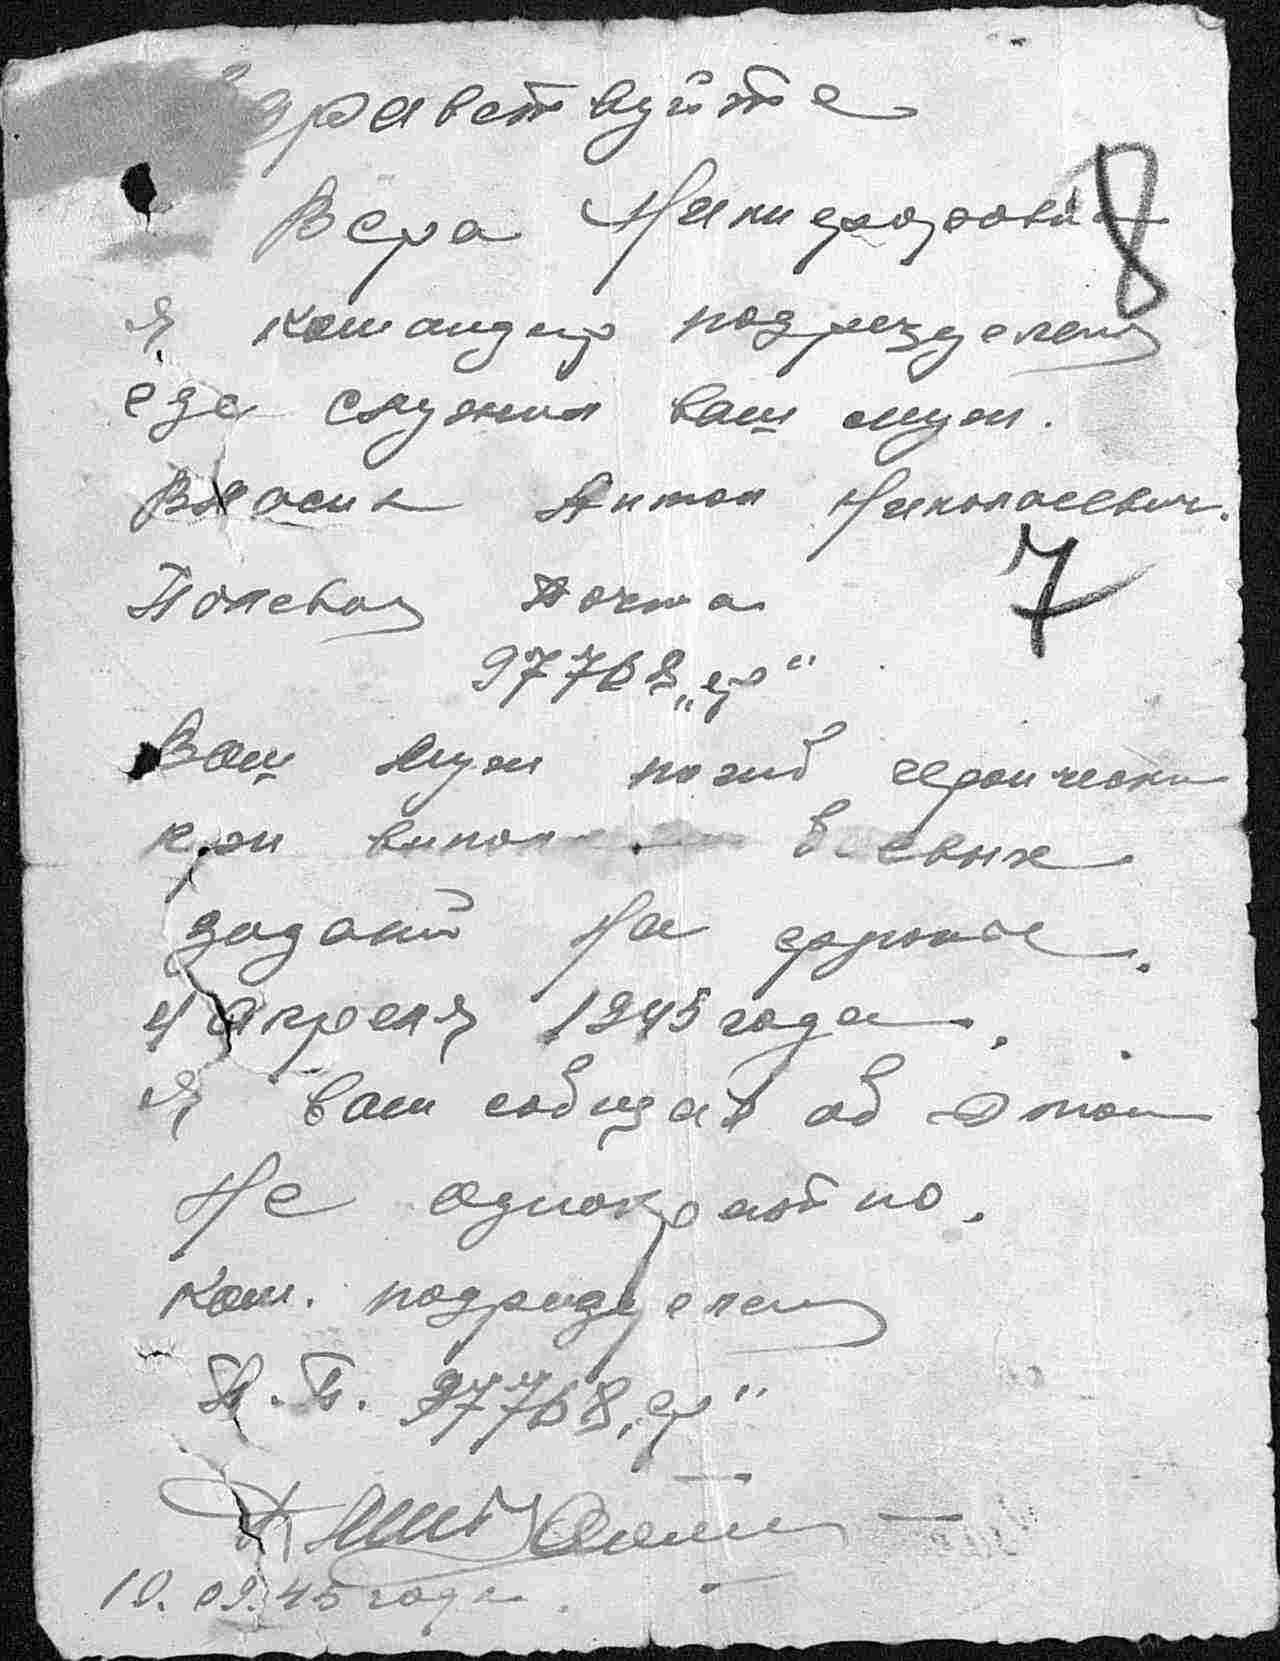 Здравствуйте
Вера Никифоровна
8
Я командир подразделения
где служил ваш муж.
Власик Антон Николаевич.
Полевая Почта
7
97768 „ф"
Ваш муж погиб героически
при выполн боевых
заданий На фронте.
4 апреля 1945 года.
Я вам собщал об этом
Не однократно.
Ком. подразделения
П. П. 97768 „ф"
10. 09. 45 года.